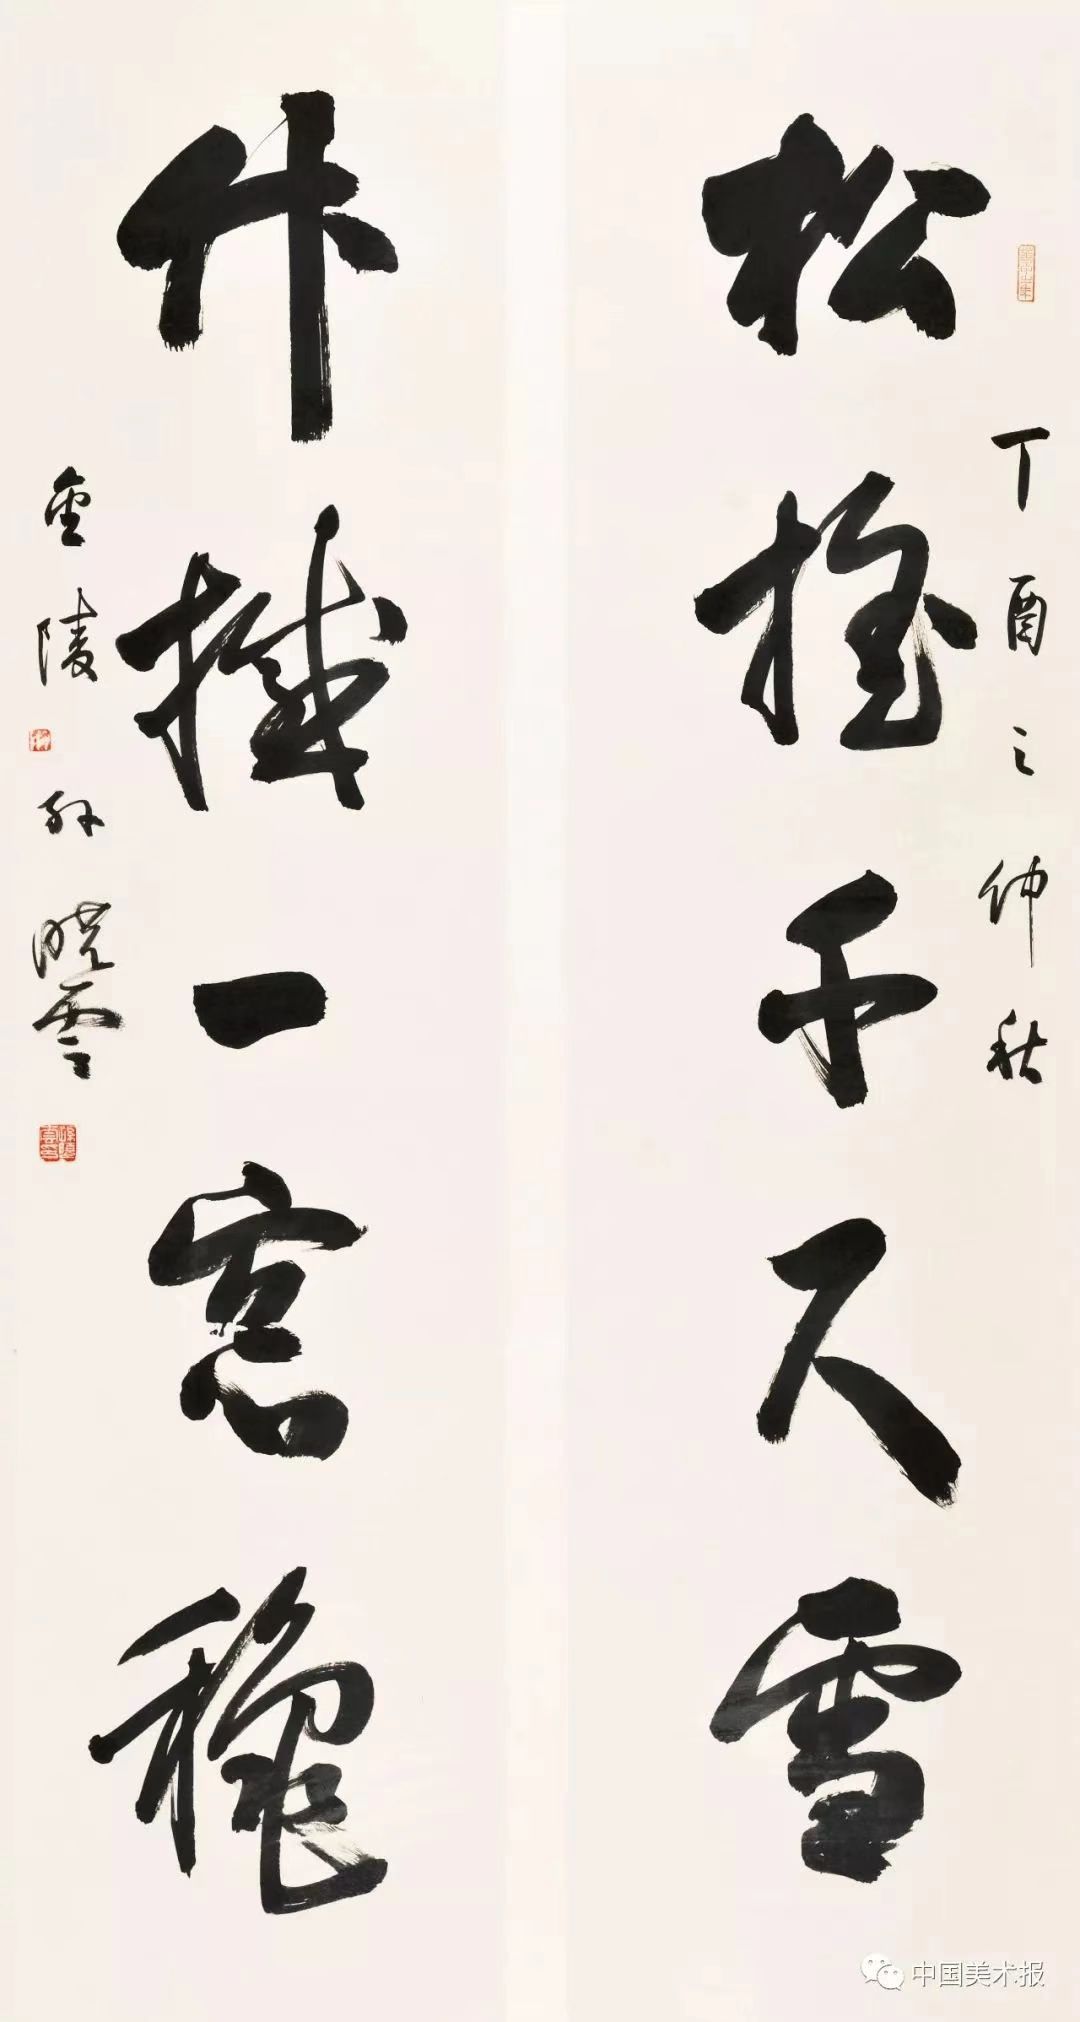 松千尺雪
丁酉之仲秋
竹撼一窓龝
金陵孙晓雲
中国美术报